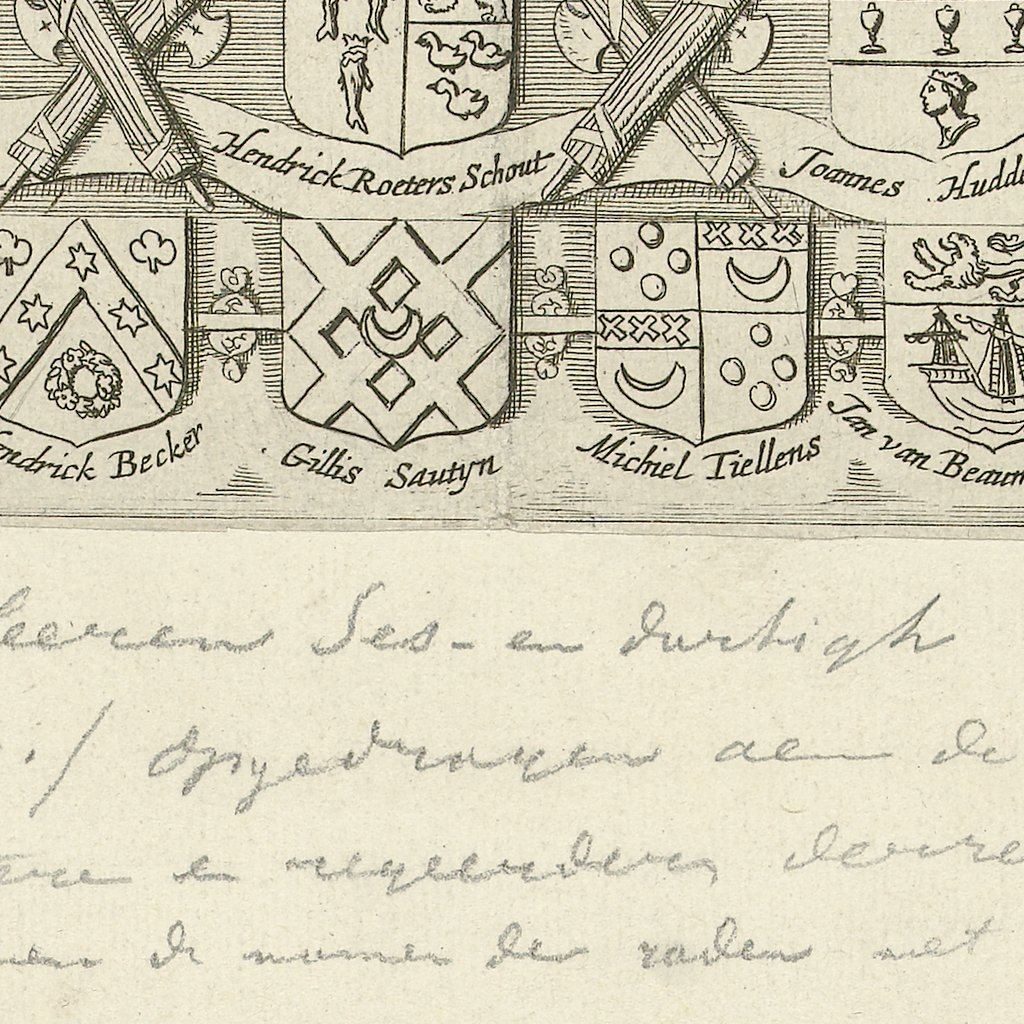 Hendrick Roeters Schout
Joannes Hudde
Hendrick Becker
Gillis Sautyn
Michiel Tiellens
Jan van Beaum
Heeren Ses-en dertigh
./ Opgedragen aen de
en regeerders deser
de namen der raden met